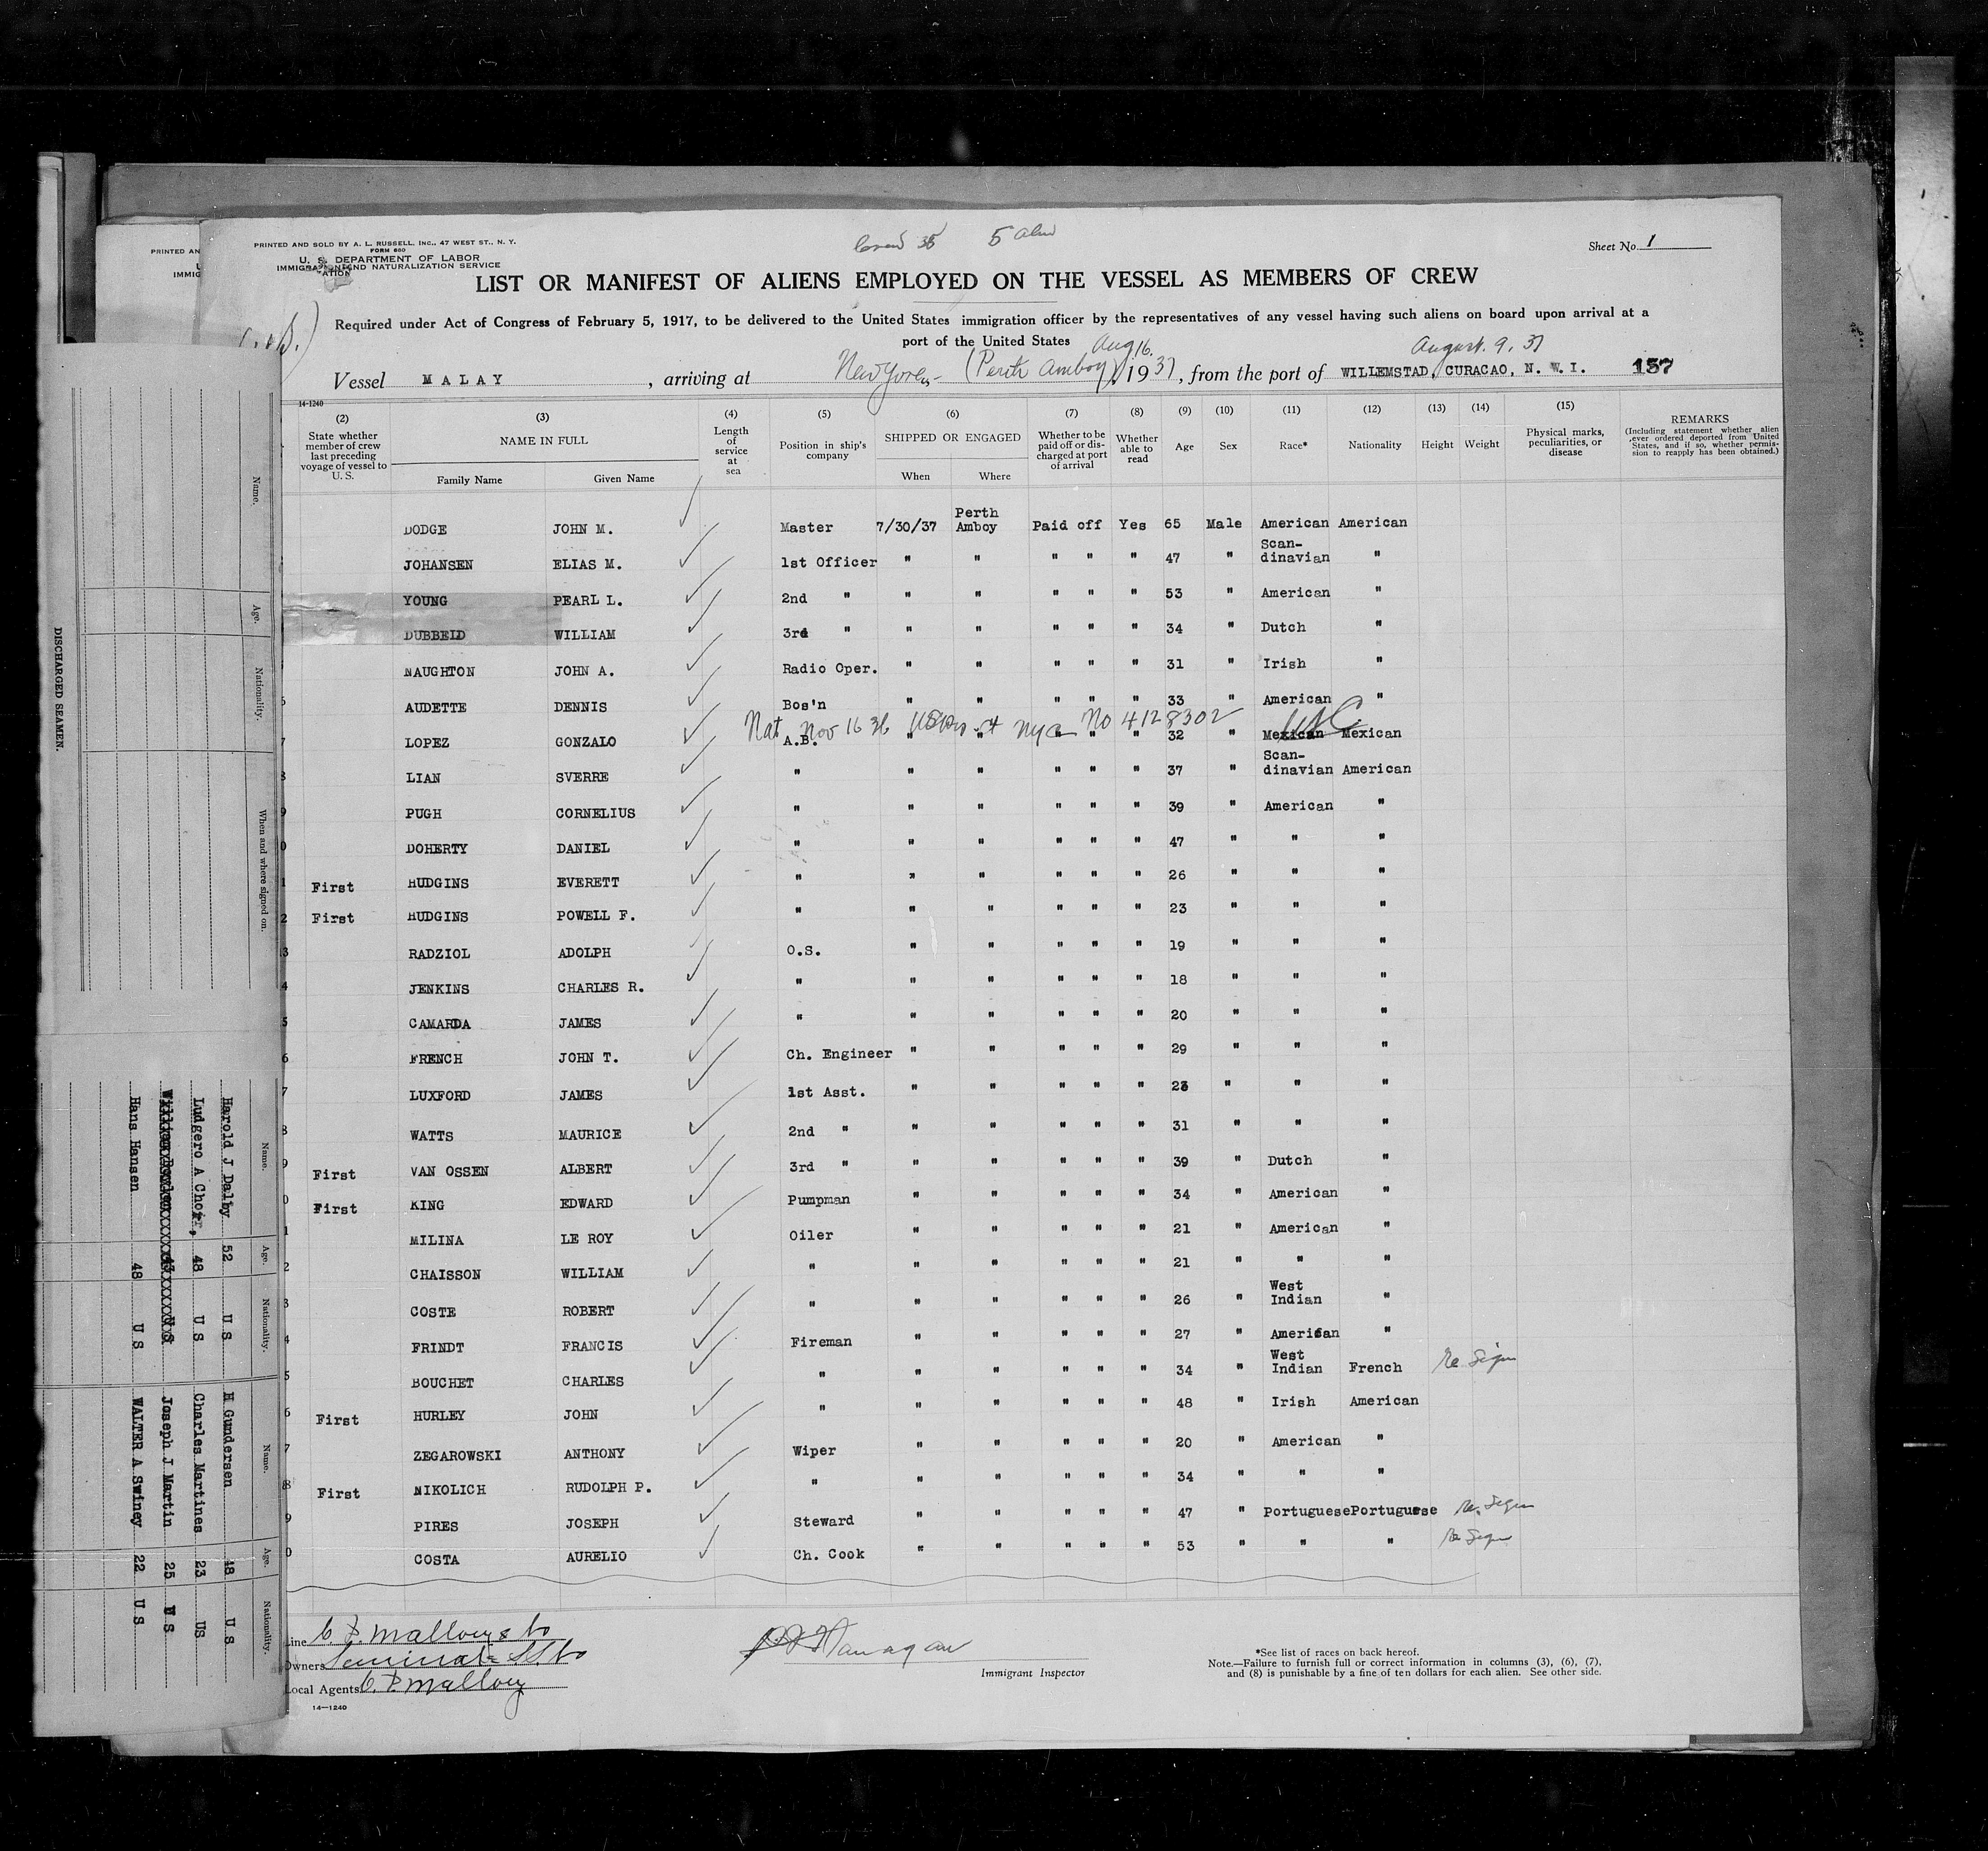 PRINTED AND SOLD BY A. L. RUSSELL, INC., 47 WEST ST., N. Y.
FORM 680
U. S. DEPARTMENT OF LABOR
IMMIGRATION AND NATURALIZATION SERVICE
5
Sheet No. 1
LIST OR MANIFEST OF ALIENS EMPLOYED ON THE VESSEL AS MEMBERS OF CREW
Required under Act of Congress of February 5, 1917, to be delivered to the United States immigration officer by the representatives of any vessel having such aliens on board upon arrival at a
port of the United States
Vessel MALAY, arriving at New York - (Perth Amboy) Aug 16. 1937, from the port of WILLEMSTAD, CURACAO, N. W. I. August. 9. 37 157
14-1240
(2) (3) (4) (5) (6) (7) (8) (9) (10) (11) (12) (13) (14) (15)
State whether member of crew last preceding voyage of vessel to U. S.
NAME IN FULL
Family Name Given Name
Length of service at sea
Position in ship's company
SHIPPED OR ENGAGED
When Where
Whether to be paid off or discharged at port of arrival
Whether able to read
Age
Sex
Race*
Nationality
Height
Weight
Physical marks, peculiarities, or disease
REMARKS
(Including statement whether alien ever ordered deported from United States, and if so, whether permission to reapply has been obtained.)
DODGE JOHN M. Master 7/30/37 Perth Amboy Paid off Yes 65 Male American American
JOHANSEN ELIAS M. 1st Officer " " " " " 47 " Scandinavian "
YOUNG PEARL L. 2nd " " " " " " 53 " American "
DUBBELD WILLIAM 3rd " " " " " " 34 " Dutch "
NAUGHTON JOHN A. Radio Oper. " " " " " 31 " Irish "
AUDETTE DENNIS Bos'n " " " " " 33 " American "
Nat Nov 16 36 NYC No 4128302
7 LOPEZ GONZALO A.B. " " " " " 32 " Mexican Mexican
8 LIAN SVERRE " " " " " " 37 " Scandinavian American
9 PUGH CORNELIUS " " " " " " 39 " American "
0 DOHERTY DANIEL " " " " " " 47 " " "
1 First HUDGINS EVERETT " " " " " " 26 " " "
2 First HUDGINS POWELL F. " " " " " " 23 " " "
3 RADZIOL ADOLPH O.S. " " " " " 19 " " "
4 JENKINS CHARLES R. " " " " " " 18 " " "
5 CAMARDA JAMES " " " " " " 20 " " "
6 FRENCH JOHN T. Ch. Engineer " " " " " 29 " " "
7 LUXFORD JAMES 1st Asst. " " " " " " "
8 WATTS MAURICE 2nd " " " " " " 31 " " "
9 First VAN OSSEN ALBERT 3rd " " " " " " 39 " Dutch "
0 First KING EDWARD Pumpman " " " " " 34 " American "
1 MILINA LE ROY Oiler " " " " " 21 " American "
2 CHAISSON WILLIAM " " " " " " 21 " " "
3 COSTE ROBERT " " " " " " 26 " West Indian "
4 FRINDT FRANCIS Fireman " " " " " 27 " American "
5 BOUCHET CHARLES " " " " " " 34 " West Indian French Re Sign
6 First HURLEY JOHN " " " " " " 48 " Irish American
7 ZEGAROWSKI ANTHONY Wiper " " " " " 20 " American "
8 First NIKOLICH RUDOLPH P. " " " " " " 34 " " "
9 PIRES JOSEPH Steward " " " " " 47 " Portuguese Portuguese Re. Sign
0 COSTA AURELIO Ch. Cook " " " " " 53 " " " Re Sign
Line C. D. Mallory & Co
Owners Seminole S.S. Co
Local Agents C. D. Mallory
14-1240
Immigrant Inspector
*See list of races on back hereof.
Note.—Failure to furnish full or correct information in columns (3), (6), (7),
and (8) is punishable by a fine of ten dollars for each alien. See other side.
PRINTED AN
IMMIG
DISCHARGED SEAMEN.
Name. Age. Nationality. When and where signed on.
Name. Age. Nationality. Name. Age. Nationality.
Harold J Dalby 52 U S H Gundersen 48 U.S
Ludgero A Choir, 48 U S Charles Martines 23 US
Joseph J Martin 25 U S
Hans Hansen 48 U S WALTER A Swiney 22 U S